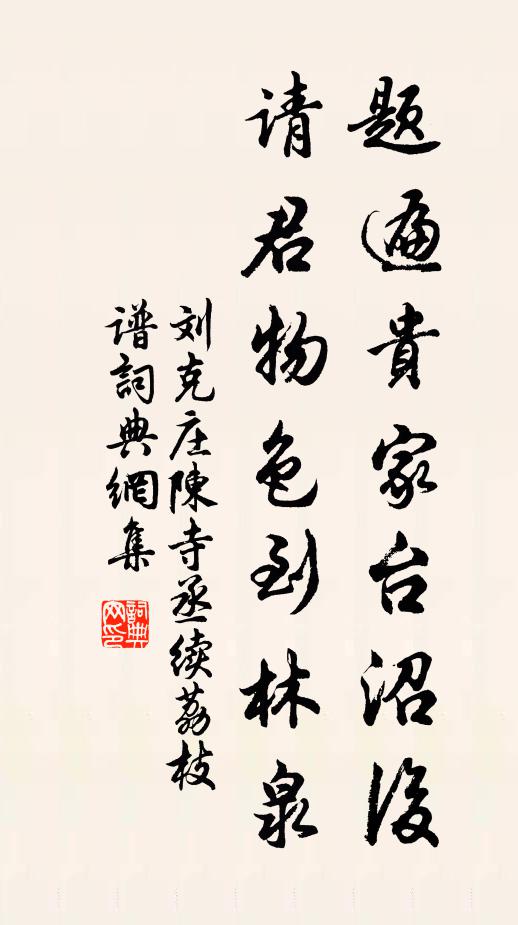 题遍貴家台沼後
请君物色到林泉
刘克庄陳寺丞续荔枝
谱詞典網集
詞典
网印